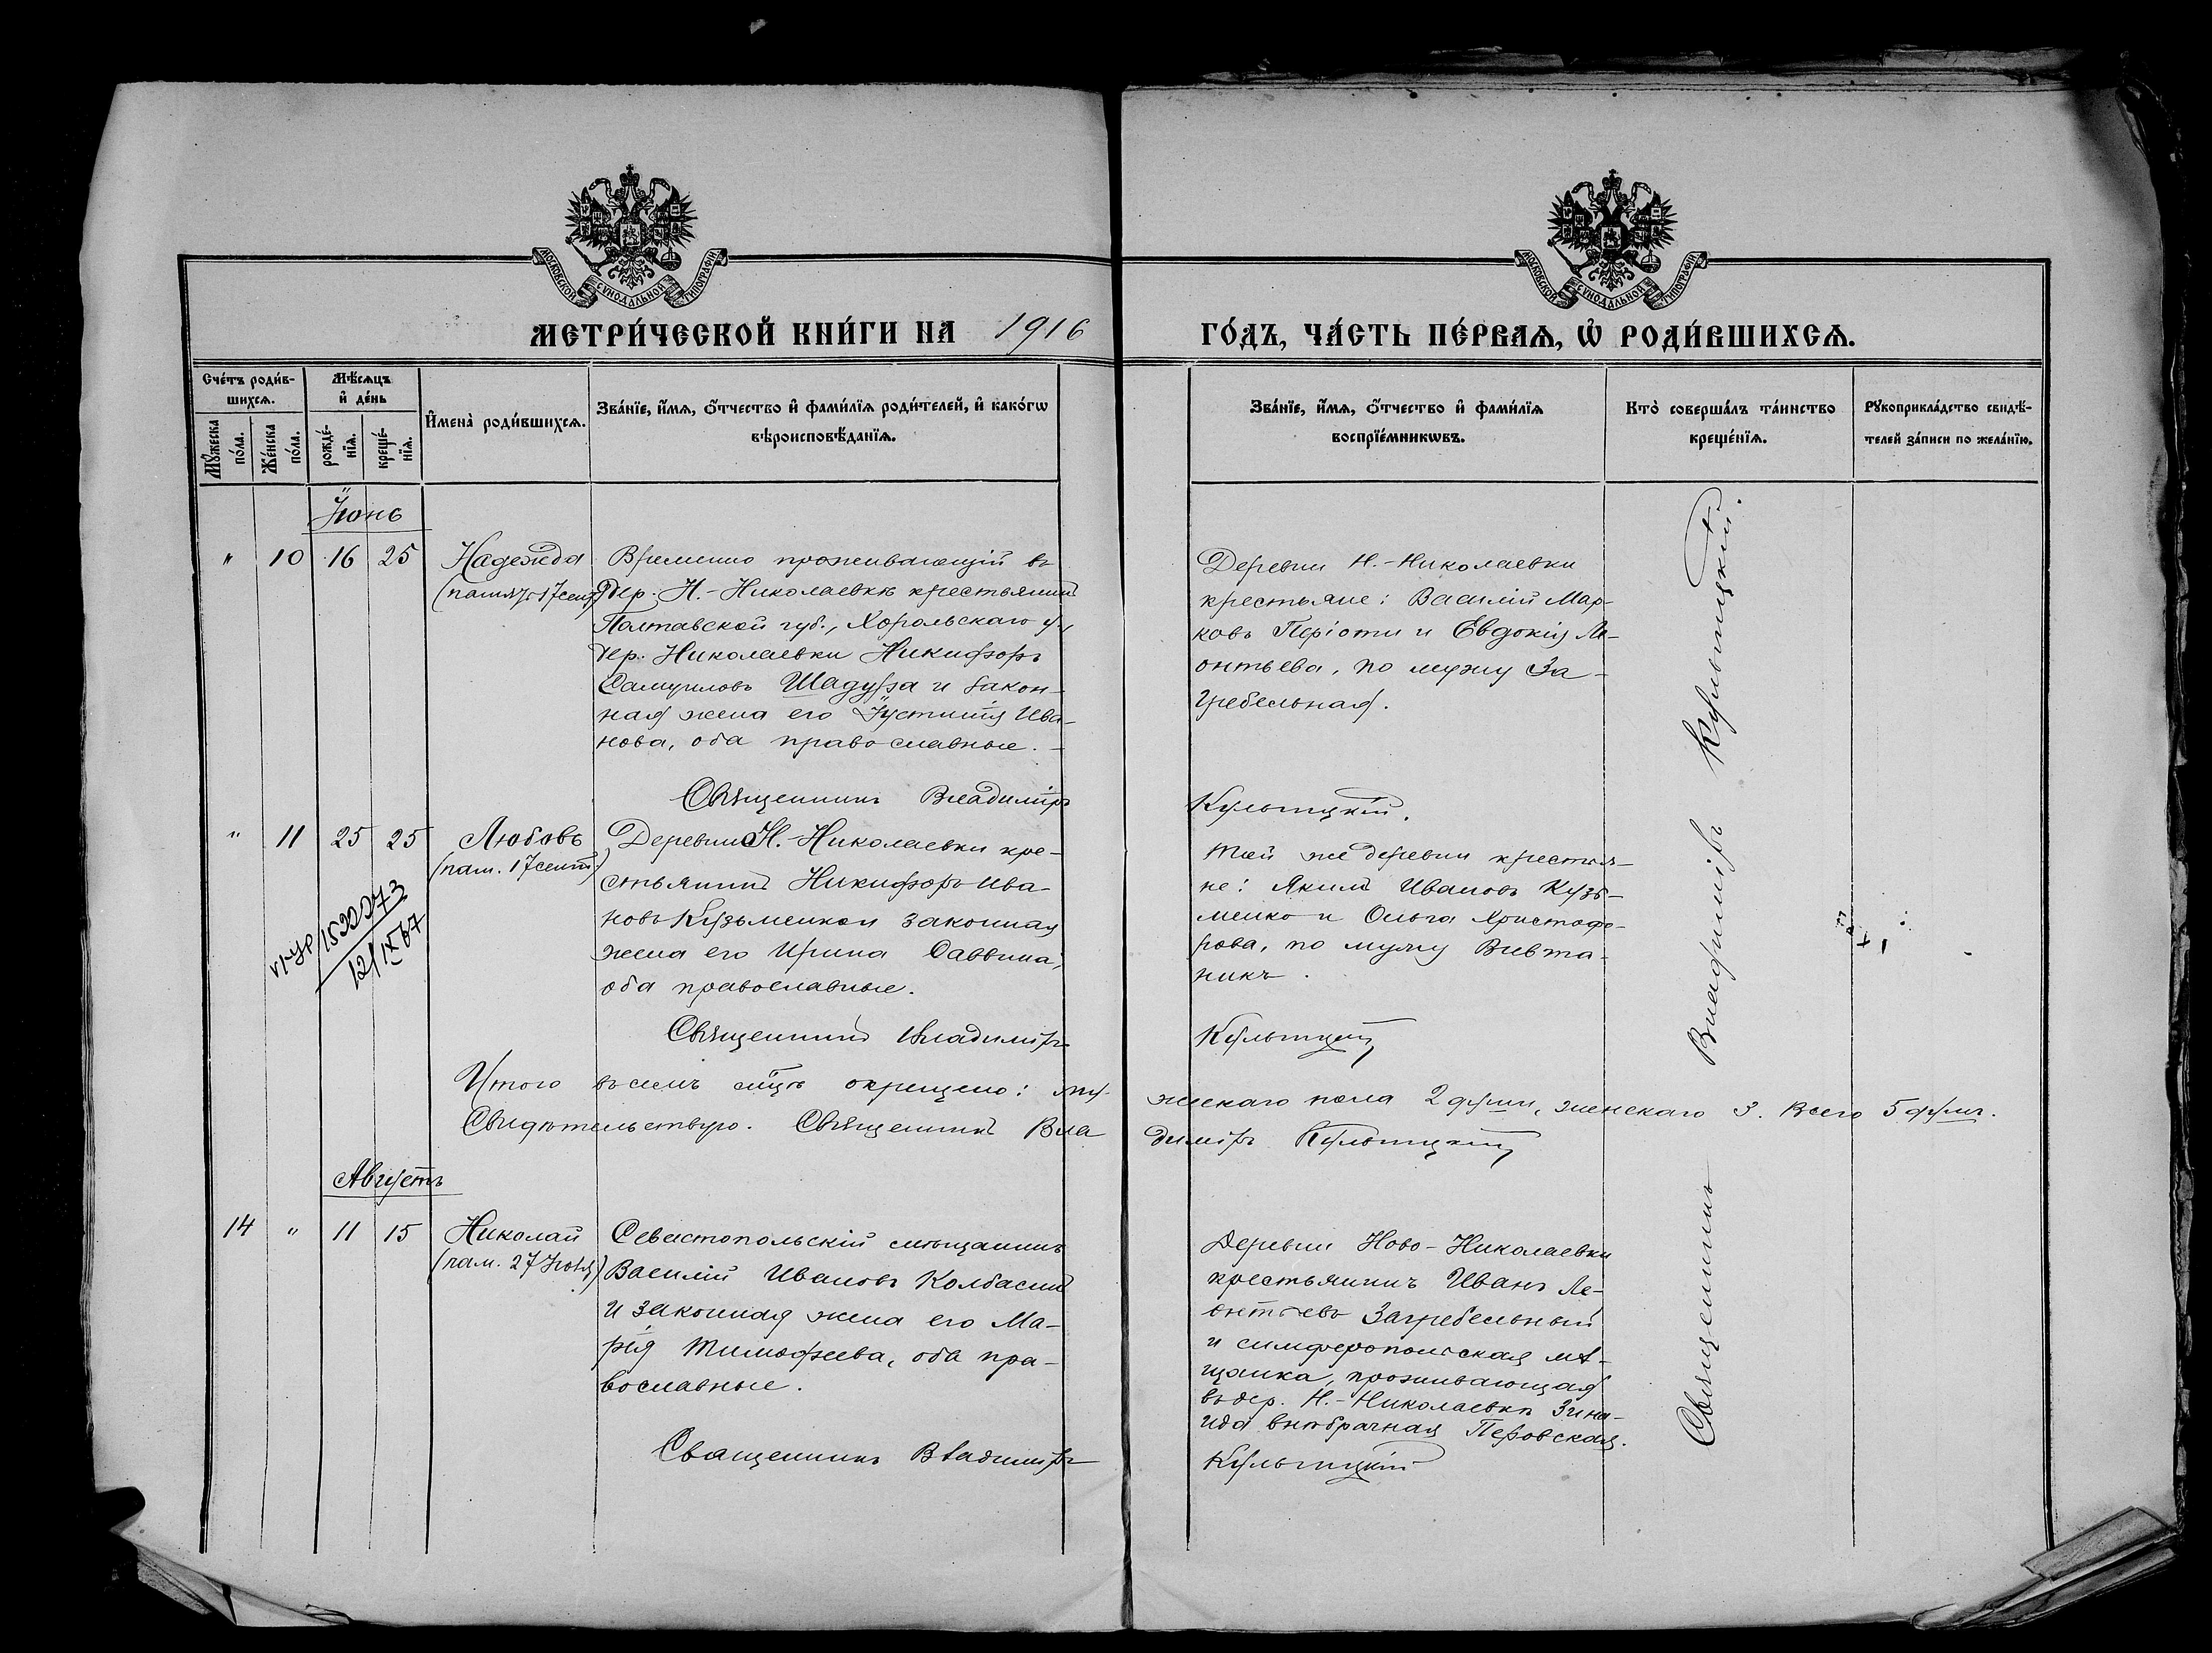 МОСКОВСКОЙ СѴНОДАЛЬНОЙ ТИПОГРАФІИ
МОСКОВСКОЙ СѴНОДАЛЬНОЙ ТИПОГРАФІИ
МЕТРИ́ЧЕСКОЙ КНИ́ГИ НА 1916 ГО́ДЪ, ЧА́СТЬ ПЕ́РВАѦ, Ѡ҆ РОДИ́ВШИХСѦ.
Сче́тъ роди́в-
шихсѧ.
Мꙋ́жеска
по́ла.
Же́нска
по́ла.
Мѣ́сѧцъ
и҆ де́нь
рожде́-
нїѧ.
креще́-
нїѧ.
И҆мена̀ роди́вшихсѧ.
Зва́нїе, и҆́мѧ, ѻ҆́тчество и҆ фами́лїѧ роди́телей, и҆ како́гѡ
вѣроисповѣ́данїѧ.
Зва́нїе, и҆́мѧ, ѻ҆́тчество и҆ фами́лїѧ
воспрїе́мникѡвъ.
Кто̀ соверша́лъ та́инство
креще́нїѧ.
Рꙋкоприкла́дство свидѣ́-
телей за́писи по жела́нїю.
Іюнь
" 10 16 25 Надежда
(память 17 сент.)
Временно проживающій въ
дер. Н.-Николаевкѣ крестьянинъ
Полтавской губ., Хорольскаго у.,
дер. Николаевки Никифоръ
Самуиловъ Шадура и закон-
ная жена его Іустинія Ива-
нова, оба православные. -
Деревни Н.-Николаевки
крестьяне: Василій Мар-
ковъ Періоти и Евдокія Ле-
онтьева, по мужу За-
гребельная.
Священникъ Владиміръ Кульпицкій.
" 11 25 25 Любовь
(пам. 17 сент.)
Деревни Н.-Николаевки кре-
стьянинъ Никифоръ Ива-
новъ Кузьменко и законная
жена его Ирина Саввина,
оба православные.
Той же деревни крестья-
не: Якимъ Ивановъ Кузь-
менко и Ольга Христофо-
рова, по мужу Вивта-
никъ.
12/IX 67
Священникъ Владиміръ Кульпицкій
Итого въ семъ мѣсяцѣ окрещено: мужескаго пола 2 души, женскаго 3. Всего 5 душъ.
Свидѣтельствую. Священникъ Владиміръ Кульпицкій
Августъ
14 " 11 15 Николай
(пам. 27 Іюля)
Севастопольскій мѣщанинъ
Василій Ивановъ Колбасинъ
и законная жена его Ма-
рія Тимофеева, оба пра-
вославные.
Деревни Ново-Николаевки
крестьянинъ Иванъ Ле-
онтьевъ Загребельный
и симферопольская мѣ-
щанка, проживающая
въ дер. Н.-Николаевкѣ Зина-
ида внѣбрачная Перовская.
Священникъ Владиміръ Кульпицкій
Священникъ Владиміръ Кульпицкій.